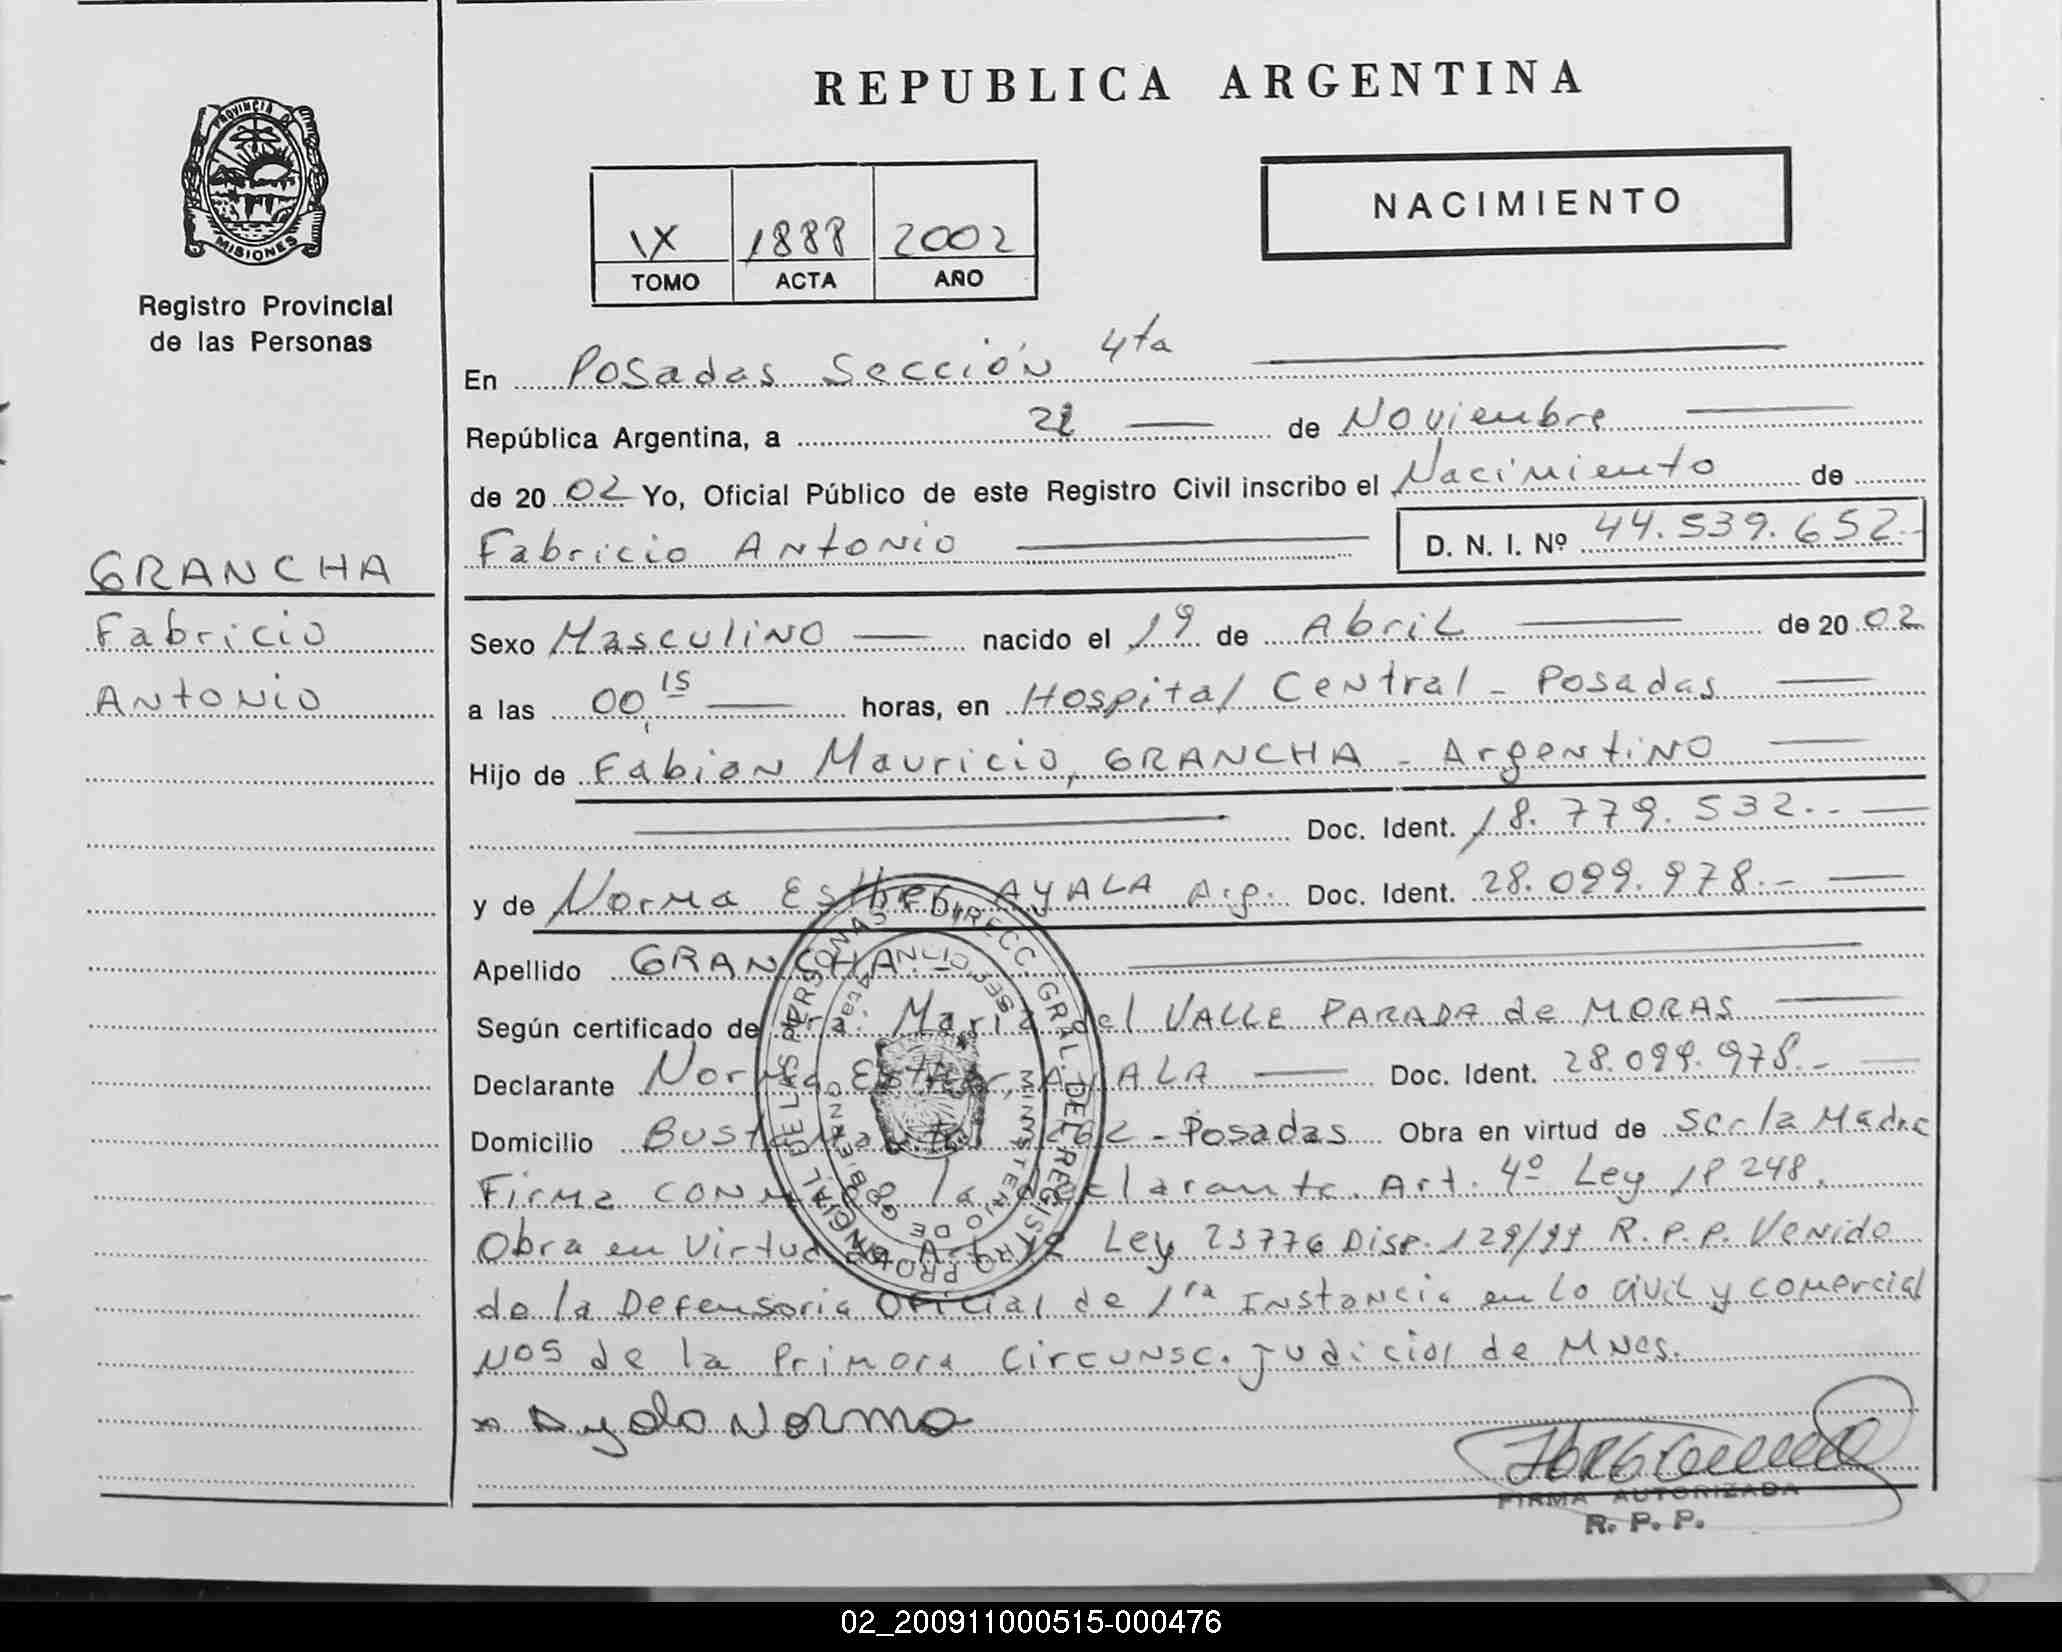 REPUBLICA ARGENTINA
PROVINCIA DE MISIONES
Registro Provincial
de las Personas
NACIMIENTO
IX 1888 2002
TOMO ACTA AÑO
En Posadas Sección 4ta
República Argentina, a de Noviembre
de 20 02 Yo, Oficial Público de este Registro Civil inscribo el Nacimiento de
Fabricio Antonio D. N. I. Nº 44.539.652.-
GRANCHA
Fabricio
Antonio
Sexo Masculino nacido el 19 de Abril de 20 02
a las 00,15 horas, en Hospital Central - Posadas
Hijo de Fabian Mauricio, GRANCHA - Argentino
Doc. Ident. 18.779.532.-
y de Norma Esther AYALA Arg. Doc. Ident. 28.099.978.-
Apellido GRANCHA.-
Según certificado de Dra. Maria del VALLE PARADA de MORAS
Declarante Norma Esther, AYALA Doc. Ident. 28.099.978.-
Domicilio - Posadas Obra en virtud de Ser la Madre
Firma la declarante. Art. 4º Ley 18 248.
Obra en Virtud Ley 23776 Disp. 129/99 R.P.P. Venido
de la Defensoria Oficial de 1ra Instancia en lo Civil y Comercial
de la Primera Circunsc. Judicial de Mnes.
Ayala Norma
DIRECC. GRAL. DEL REGISTRO PROVINCIAL DE LAS PERSONAS
MINISTERIO DE GOBIERNO
FIRMA AUTORIZADA
R. P. P.
02_200911000515-000476